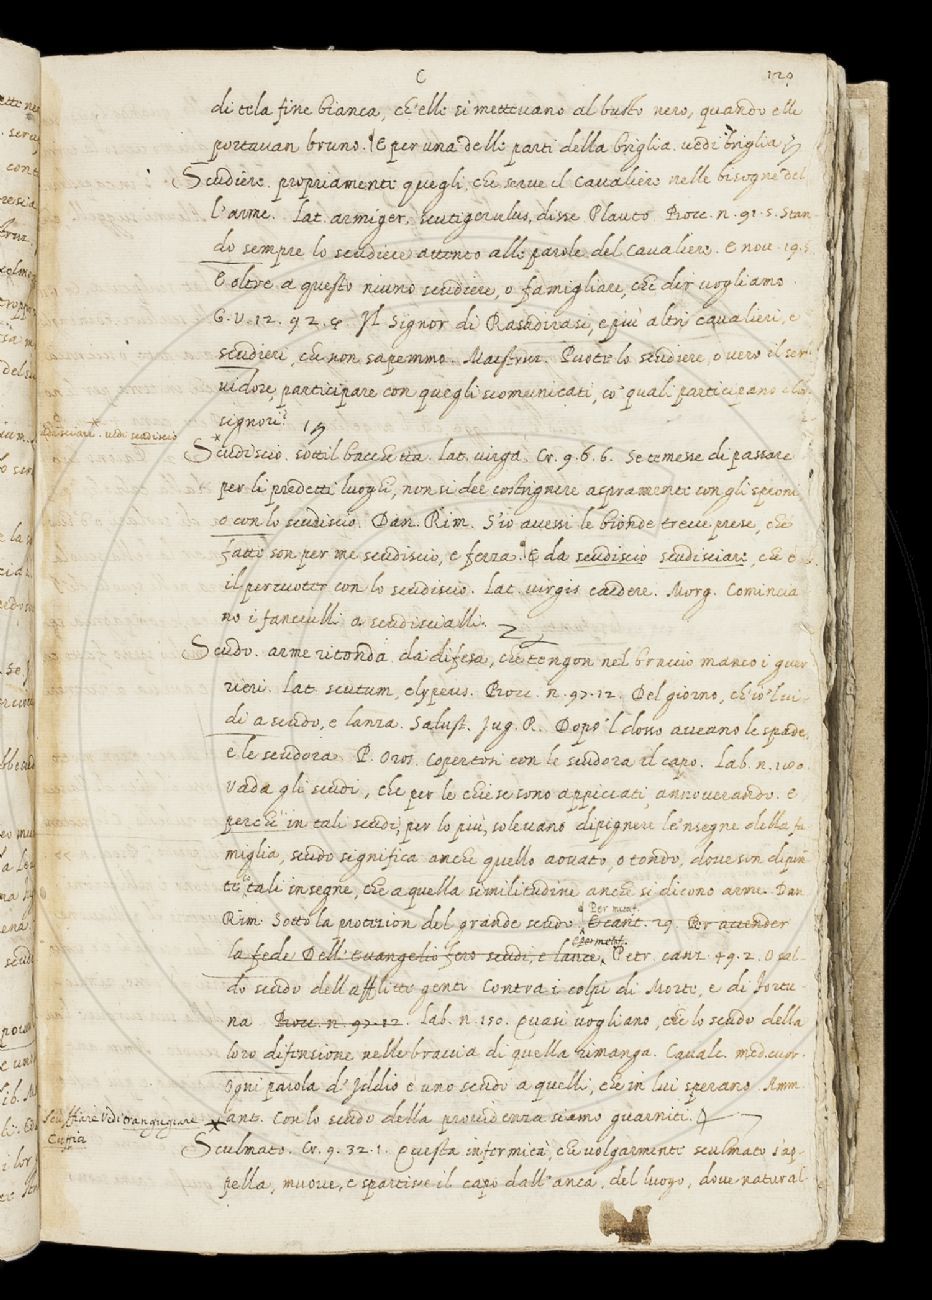 C
129
di tela fine bianca, ch'elle si mettevano al busto nero, quando elle
portavan bruno. E per una delle parti della briglia. vedi briglia
Scudiere. propriamente quegli, che serve il Cavaliere nelle bisogne del
l'arme. Lat. armiger, scutigerulus, disse Plauto. Bocc. n. 91. 5. Stan-
do sempre lo scudiere attento alle parole del Cavaliere. E nov. 19. 5
E oltre a questo niuno scudiere, o famigliare, che dir vogliamo
G. V. 12. 92. 8 Il Signor di Rasadirasi, e più altri cavalieri, e
scudieri, che non sapemmo. Maestruz. Puote lo scudiere, o vero il ser-
vidore, participare con quegli scomunicati, co' quali participano i lor
signori?
Scudisciare. vedi scudiscio
Scudiscio. sottil bacchetta. lat. virga. Cr. 9. 6. 6. Se temesse di passare
per li predetti luoghi, non si dee costrignere aspramente con gli sproni,
o con lo scudiscio. Dan. Rim. S'io avessi le bionde trecce prese, che
fatto son per me scudiscio, e ferza. E da scudiscio scudisciare, che è
il percuoter con lo scudiscio. Lat. virgis caedere. Morg. Comincia
no i fanciulli a scudiscialli.
Scudo. arme ritonda da difesa, che tengon nel braccio manco i guer-
rieri. Lat. scutum, clypeus. Bocc. n. 97. 12. Del giorno, ch'io 'l vi-
di a scudo, e lanza. Salust. Jug. R. Dopo 'l dosso aveano le spade,
e le scudora P. Oros. Coperton con le scudora il capo. Lab. n. 180.
Vada gli scudi, che per le chiese sono appiccati, annoverando. E
perchè in tali scudi, per lo più, solevano dipignere le 'nsegne della fa-
miglia, scudo significa anche quello aovato, o tondo, dove son dipin-
te tali insegne, che a quella similitudine anche si dicono arme. Dan
Rim. Sotto la protezion del grande scudo. E cant. 29. Per accender
Per metaf.
la fede Dell'Evangelio fero scudi, e lance. Petr. canz. 49. 2. O sal-
E per metaf.
do scudo dell'afflitte genti Contra i colpi di Morte, e di Fortu
na Bocc. n. 97. 12. Lab. n. 150. Quasi vogliano, che lo scudo della
loro difensione nelle braccia di quella rimanga. Cavalc. med. cuor.
Ogni parola d'Iddio è uno scudo a quelli, che in lui sperano. Amm.
Scuffiare vedi trangugiare
Cuffia
ant. Con lo scudo della providenza siamo guarniti.
Sculmato. Cr. 9. 32. 1. Questa infermità, che volgarmente sculmato s'ap-
pella, muove, e spartisce il capo dall'anca, del luogo, dove natural-